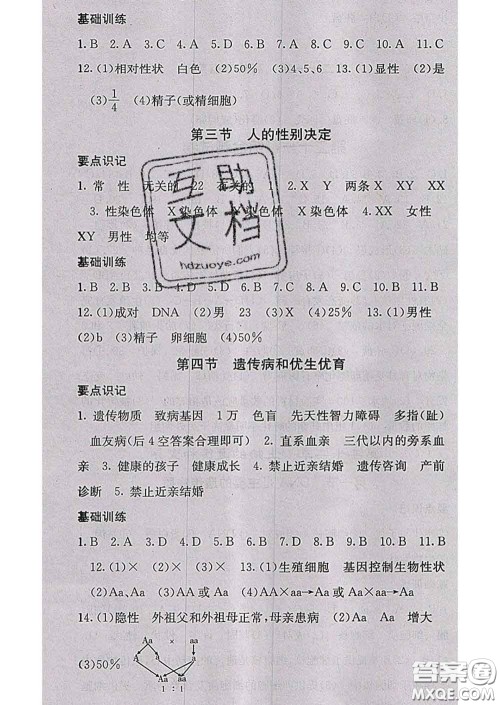 基础训练
1.B 2.A 3.C 4.A 5.D 6.B 7.C 8.C 9.A 10.A 11.C
12.(1)相对性状 白色 (2)50% (3)4、5、6 13.(1)显性 (2)是
(3)1/4 (4)精子(或精细胞)
第三节 人的性别决定
要点识记
1. 常 性 无关的 22 有关的 1 2. X Y 两条X XY XX
3. 性染色体 X染色体 X染色体 X染色体 4. XX 女性
XY 男性 均等
基础训练
1.B 2.B 3.B 4.D 5.D 6.D 7.C 8.B 9.A 10.C 11.B
12.(1)成对 DNA (2)男 23 (3)X (4)25% 13.(1)男性
(2)b (3)精子 卵细胞 (4)50%
第四节 遗传病和优生优育
要点识记
1. 遗传物质 致病基因 1万 色盲 先天性智力障碍 多指(趾)
血友病(后4空答案合理即可) 2. 直系血亲 三代以内的旁系血
亲 3. 健康的孩子 健康成长 4. 禁止近亲结婚 遗传咨询 产前
诊断 5. 禁止近亲结婚
基础训练
1.B 2.A 3.D 4.D 5.D 6.D 7.B 8.A 9.D 10.A 11.B
12.(1)× (2)× (3)× 13.(1)生殖细胞 基因控制生物性状
(2)Aa、Aa (3)AA或Aa (4)AA×aa→Aa或Aa×aa→Aa
14.(1)隐性 外祖父和外祖母正常,母亲患病 (2)Aa Aa 增大
(3)50% Aa × aa
A a a
Aa aa
1 : 1
互助
文档
hdzuoye.com
答案圈
MXQE.COM